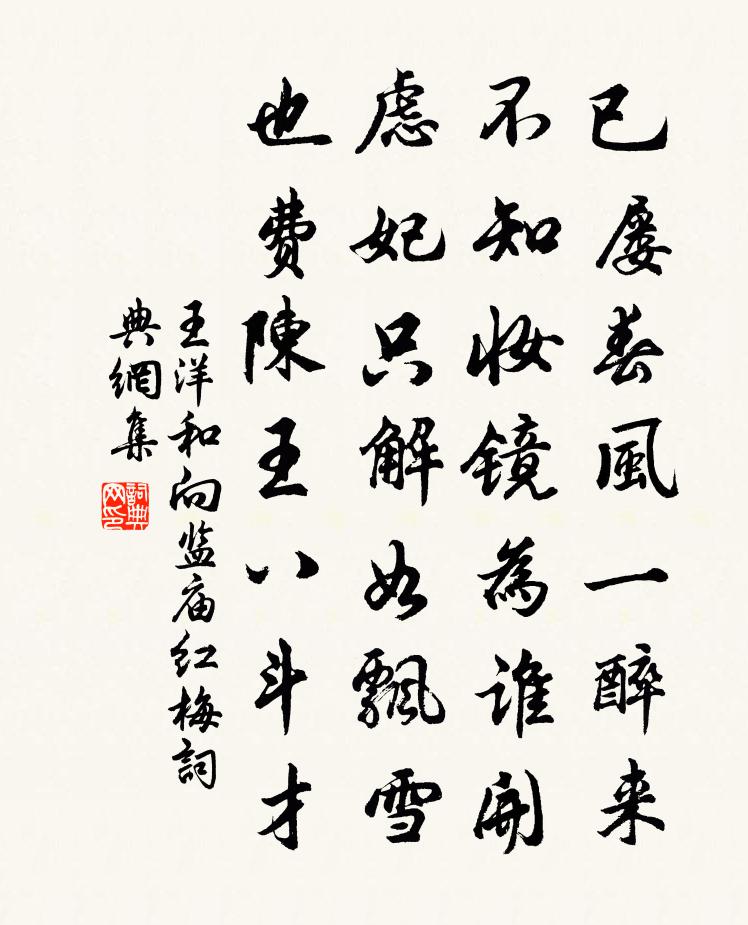 已屡春風一醉来
不知妝镜為谁開
虙妃只解如飄雪
也費陳王八斗才
王洋和向监庙红梅詞
典網集
詞典
网印